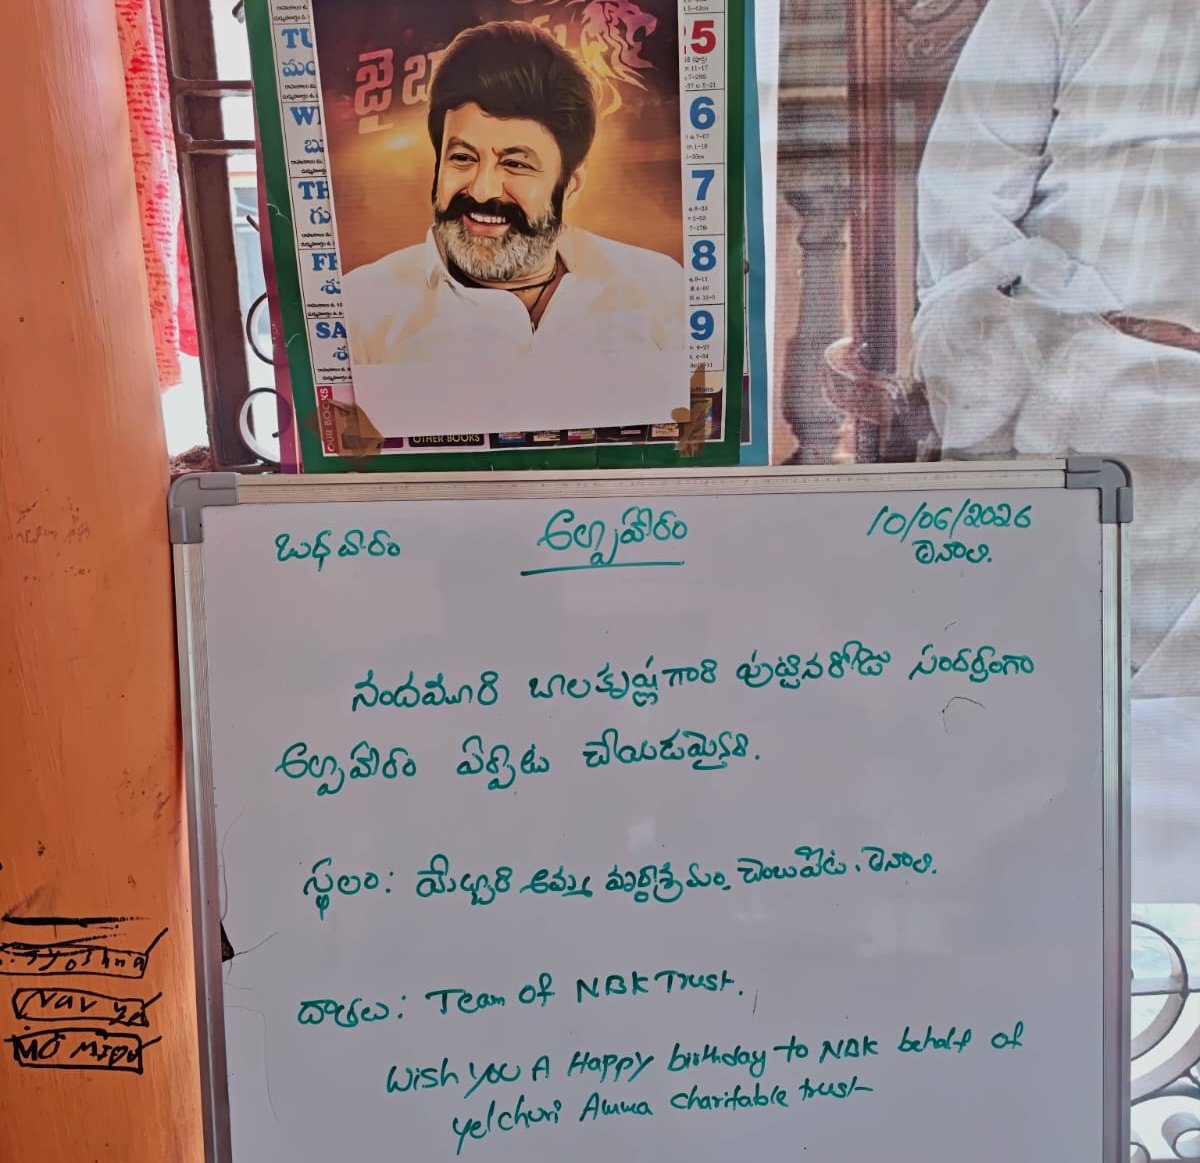 TU
WE
TH
FR
SA
జై బా
5
6
7
8
9
OUR BOOKS
OTHER BOOKS
బుధవారం
అల్పాహారం
10/06/2026
తెనాలి.
నందమూరి బాలకృష్ణగారి పుట్టినరోజు సందర్భంగా
అల్పాహారం ఏర్పాటు చేయడమైనది.
స్థలం: అమ్మ వృద్ధాశ్రమం, చెంచుపేట, తెనాలి.
దాతలు: Team of NBK Trust.
Wish you A Happy birthday to NBK behalf of
yelchuri Amma charitable trust
Jyoshna
Navya